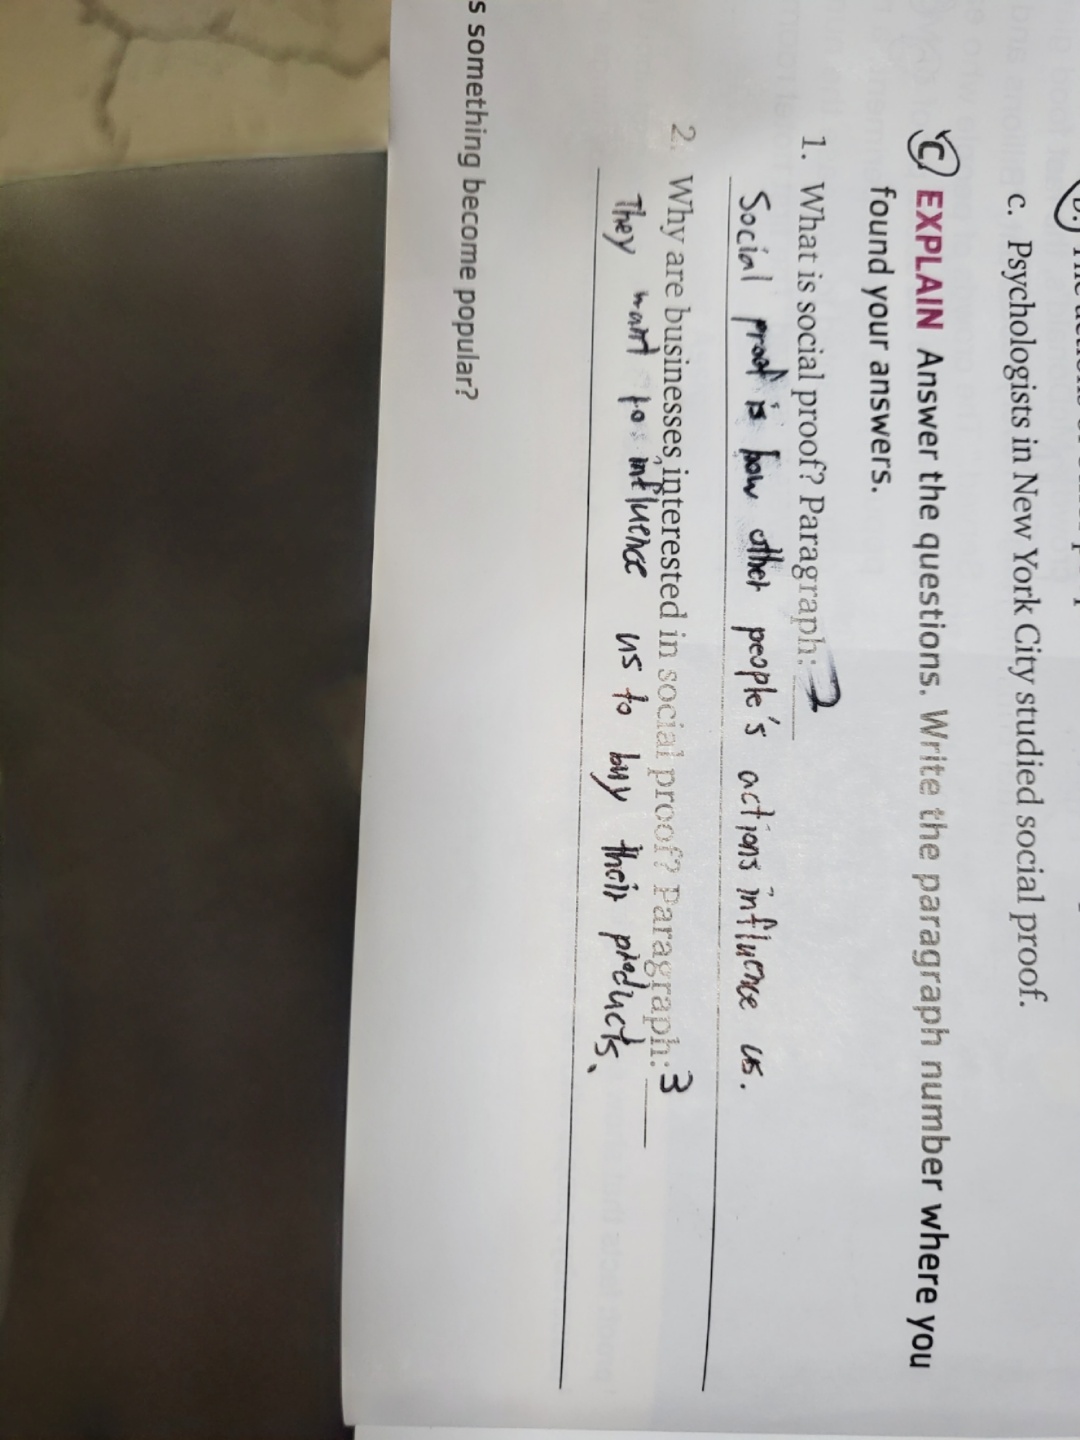 c. Psychologists in New York City studied social proof.
C EXPLAIN Answer the questions. Write the paragraph number where you
found your answers.
1. What is social proof? Paragraph: 2
Social proof is how other people's actions influence us.
2. Why are businesses interested in social proof? Paragraph: 3
They want to influence us to buy their products.
s something become popular?